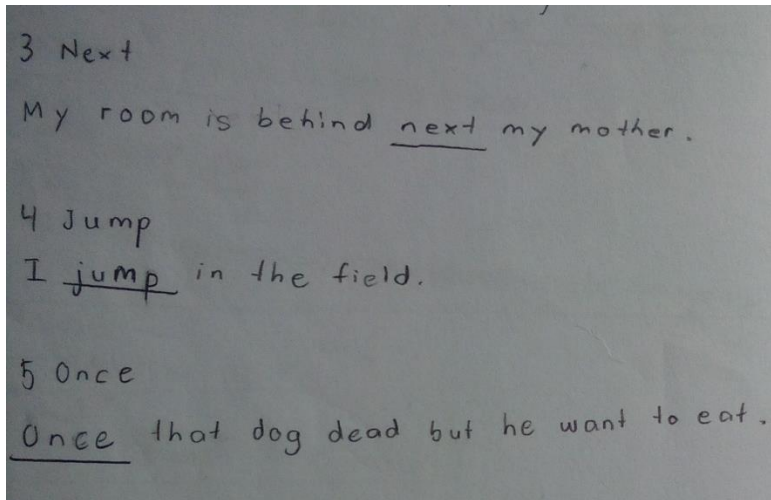 3 Next
My room is behind next my mother.
4 Jump
I jump in the field.
5 Once
Once that dog dead but he want to eat.